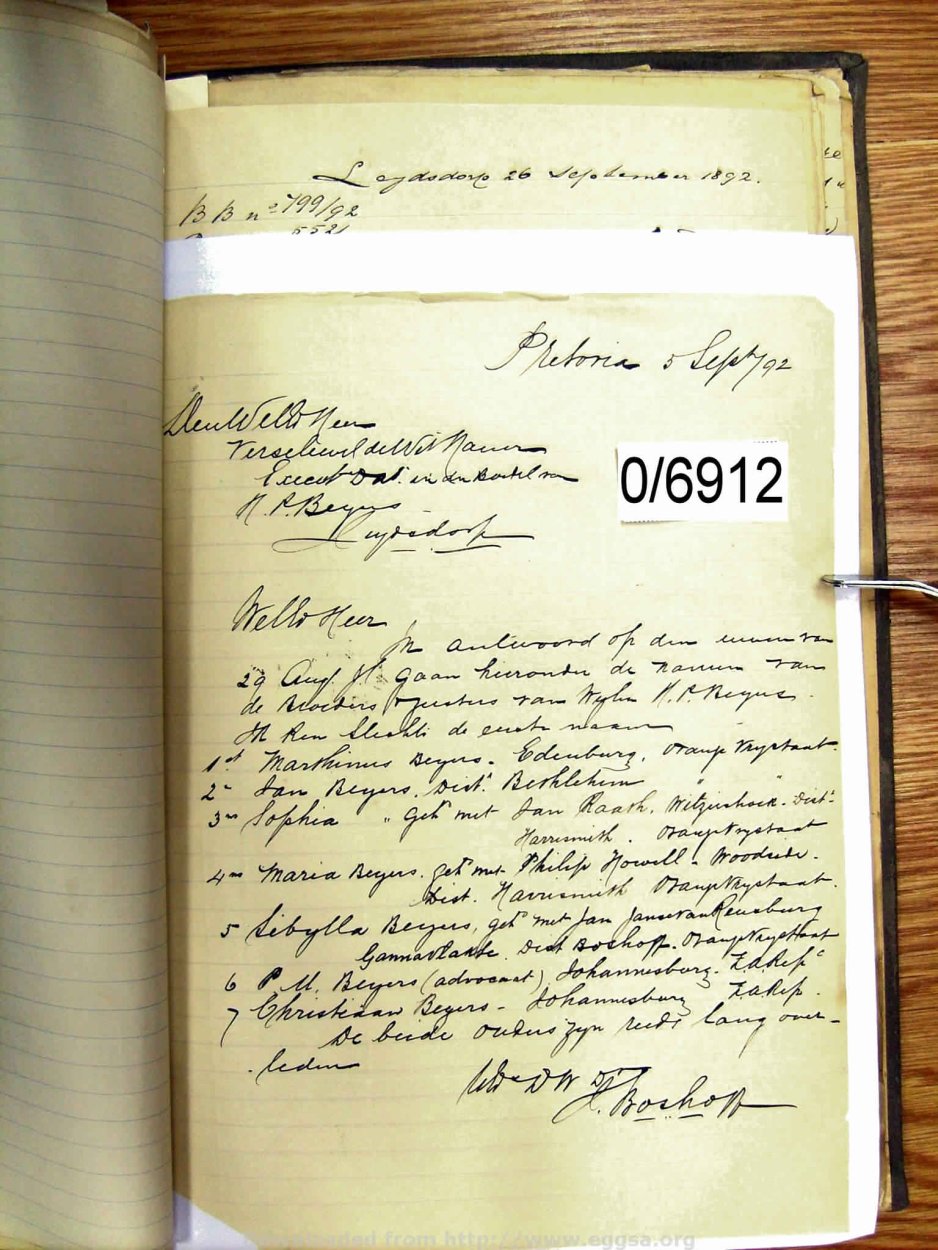 Leydsdorp 26 September 1892.
B B nº 799/92
5521
Pretoria 5 Sept/92
Den WelEd Heer
Verschuul de Wit Hamer
Execut Dat. in den Boedel van
H. P. Beyers
Leydsdorp
0/6912
WelEd Heer
In antwoord op den uwen van
29 Aug. jl. gaan hieronder de namen van
de Broeders & Zusters van Wijlen H. P. Beyers.
Ik ken slechts de eerste naam
1st Marthinus Beyers. Edenburg, Oranje Vrystaat
2de Jan Beyers, Dist. Bethlehem " "
3de Sophia " geh met Jan Raath. Witzieshoek. Dist.
Harrismith. Oranje Vrystaat
4de Maria Beyers. geh met Philip Howell. Woodside.
Dist. Harrismith Oranje Vrystaat.
5 Sibylla Beyers, geh met Jan Janse van Rensburg
Gannavlakte. Dist Boshoff. Oranje Vrystaat
6 P. M. Beyers (advocaat) Johannesburg. Z.A. Rep
7 Christiaan Beyers - Johannesburg Z.A. Rep.
De beide ouders zyn reeds lang over-
leden
UEd DW Dr
J. Boshoff
Downloaded from http://www.eggsa.org